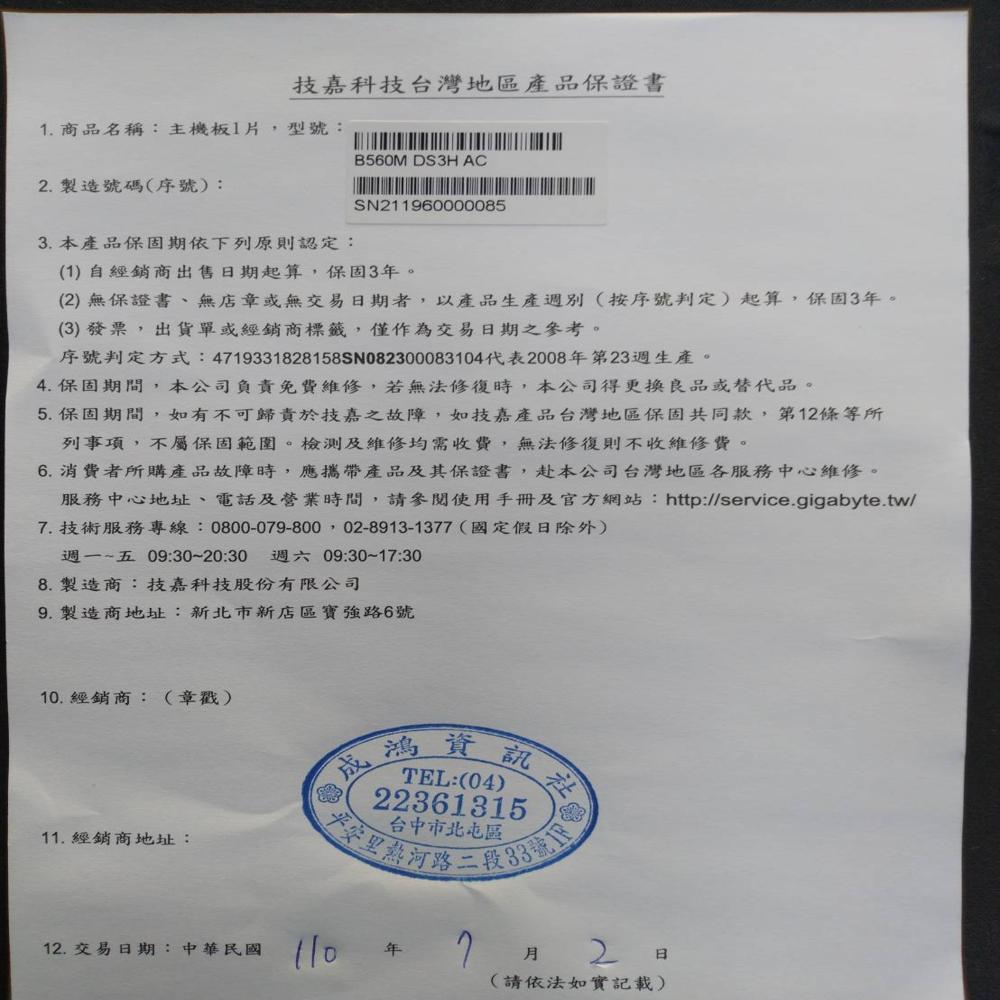 技嘉科技台灣地區產品保證書
1. 商品名稱：主機板1片，型號：
B560M DS3H AC
2. 製造號碼(序號)：
SN211960000085
3. 本產品保固期依下列原則認定：
(1) 自經銷商出售日期起算，保固3年。
(2) 無保證書、無店章或無交易日期者，以產品生產週別（按序號判定）起算，保固3年。
(3) 發票，出貨單或經銷商標籤，僅作為交易日期之參考。
序號判定方式：4719331828158SN082300083104代表2008年第23週生產。
4. 保固期間，本公司負責免費維修，若無法修復時，本公司得更換良品或替代品。
5. 保固期間，如有不可歸責於技嘉之故障，如技嘉產品台灣地區保固共同款，第12條等所
列事項，不屬保固範圍。檢測及維修均需收費，無法修復則不收維修費。
6. 消費者所購產品故障時，應攜帶產品及其保證書，赴本公司台灣地區各服務中心維修。
服務中心地址、電話及營業時間，請參閱使用手冊及官方網站：http://service.gigabyte.tw/
7. 技術服務專線：0800-079-800，02-8913-1377（國定假日除外）
週一~五 09:30~20:30 週六 09:30~17:30
8. 製造商：技嘉科技股份有限公司
9. 製造商地址：新北市新店區寶強路6號
10. 經銷商：（章戳）
成鴻資訊社
TEL:(04)
22361315
台中市北屯區
平安里熱河路二段33號1F
11. 經銷商地址：
12. 交易日期：中華民國 110 年 7 月 2 日
（請依法如實記載）